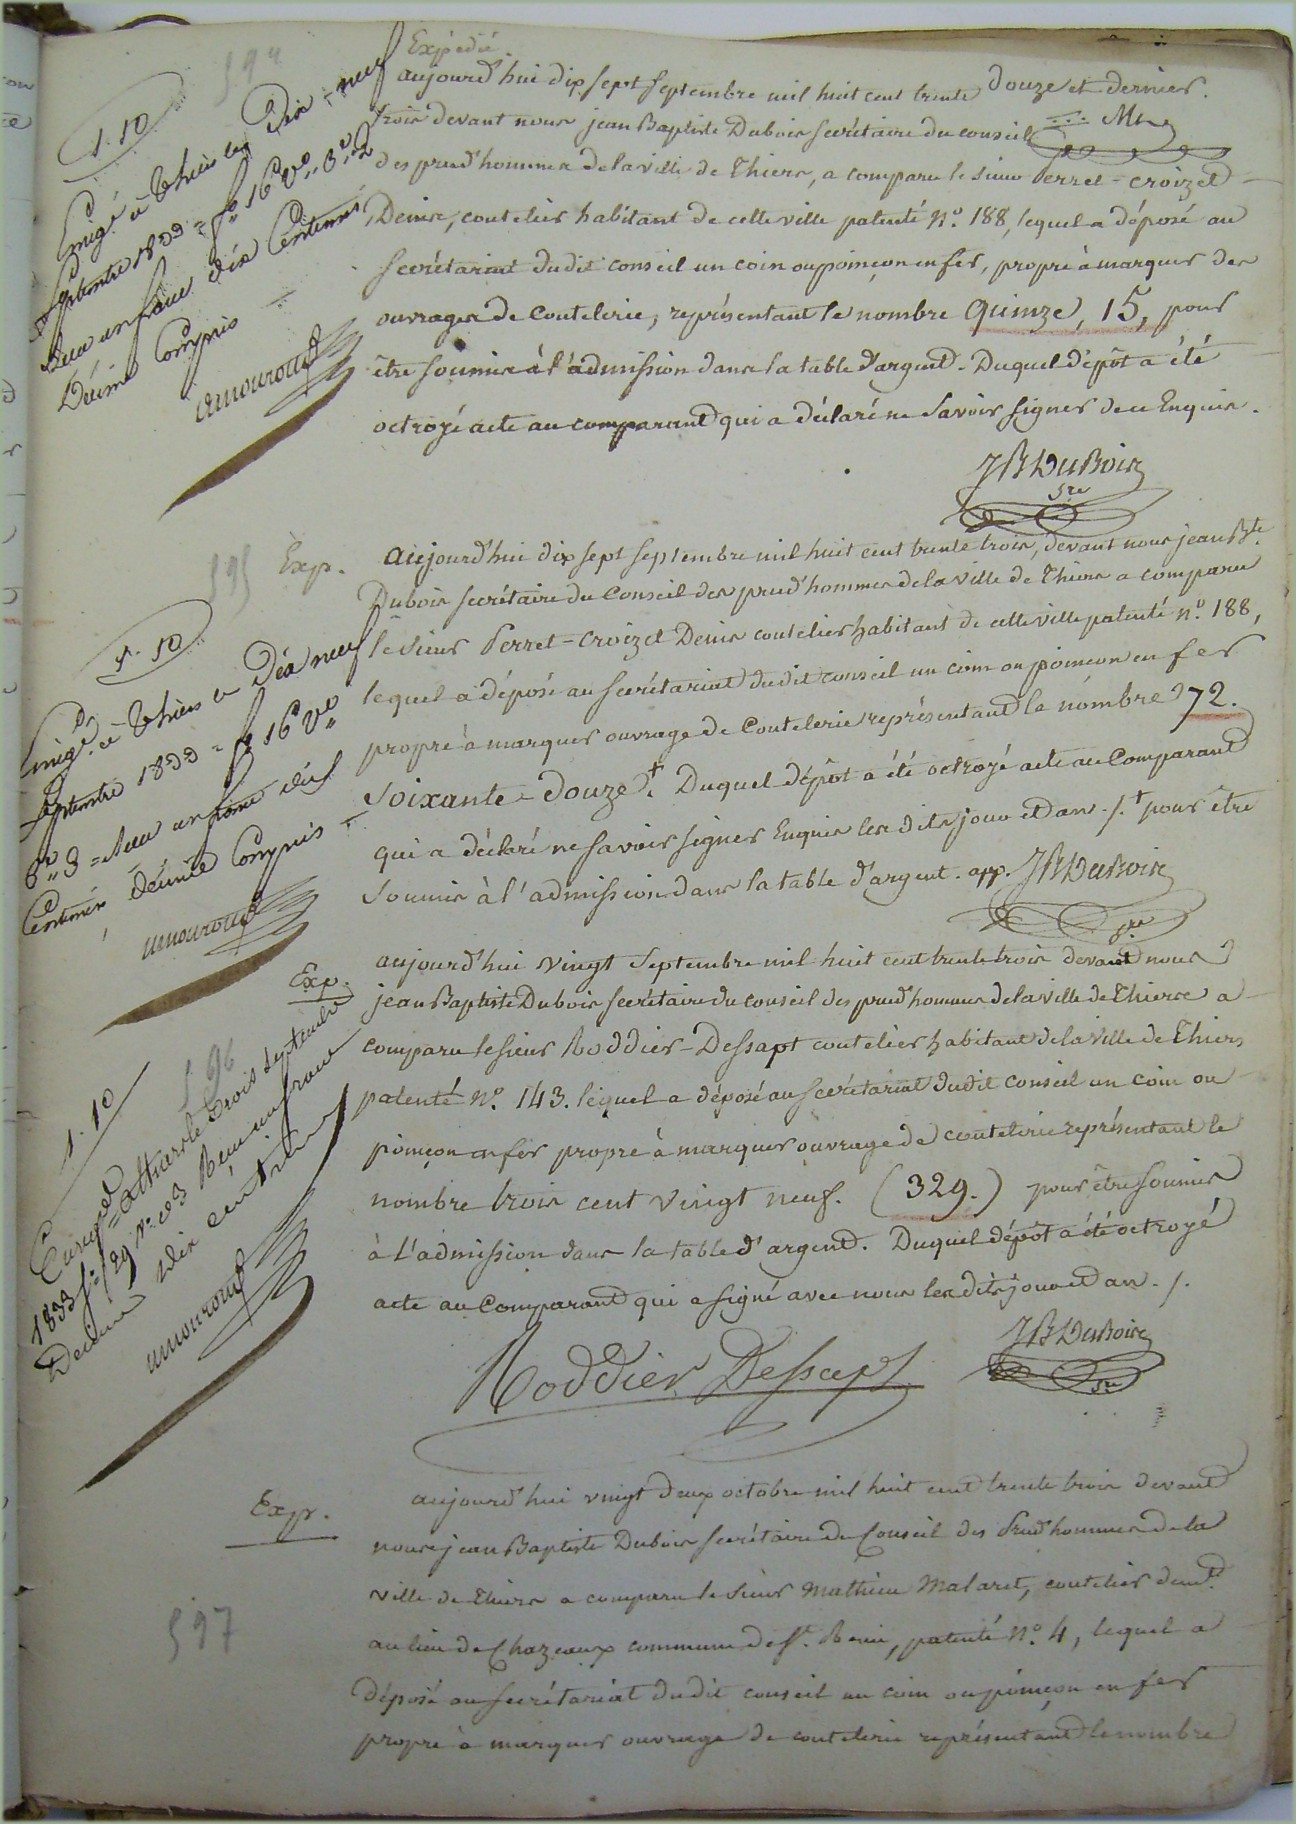 594
Expédié.
douze et dernier.
1.10
Enregé à Thiers le Dix-neuf
septembre 1833 = fo 16 Vo
Reçu un franc dix Centimes
Décime Compris
amouroux
aujourd'hui dix sept septembre mil huit cent trente
trois devant nous jean Baptiste Dubois secrétaire du conseil
des prud'hommes de la ville de Thiers, a comparu le sieur Perret-croizet
Denis, coutelier habitant de cette ville patenté No. 188, lequel a déposé au
secrétariat dudit conseil un coin ou poinçon en fer, propre à marquer des
ouvrages de Coutelerie, représentant le nombre Quinze, 15, pour
être soumis à l'admission dans la table d'argent. Duquel dépôt a été
octroyé acte au comparant qui a déclaré ne Savoir signer de ce Enquis.
JB DuBois
Sre
595
Exp.
1.10
Enregé à Thiers le Dix neuf
septembre 1833 = fo 16 Vo
Reçu un franc dix
Centimes Décime Compris
amouroux
aujourd'hui dix sept septembre mil huit cent trente trois, devant nous jean Bte
Dubois secrétaire du Conseil des prud'hommes de la ville de Thiers a comparu
le sieur Perret-croizet Denis coutelier habitant de cette ville patenté No. 188,
lequel a déposé au secrétariat dudit conseil un coin ou poinçon en fer
propre à marquer ouvrage de Coutelerie représentant le nombre 72.
Soixante-Douze +. Duquel dépôt a été octroyé acte au Comparant
qui a déclaré ne savoir signer Enquis les dits jour et an ./. + pour être
soumis à l'admission dans la table d'argent. app. JB DuBois
Sre
596
Exp.
1.10
septembre
1833 fo 29 Reçu un franc
Decime dix centimes
amouroux
aujourd'hui vingt septembre mil huit cent trente trois devant nous
jean Baptiste Dubois secrétaire du conseil des prud'hommes de la ville de Thiers a
comparu le sieur Roddier-Dessapt coutelier habitant de la ville de Thiers
patenté No. 143. lequel a déposé au secrétariat dudit conseil un coin ou
poinçon en fer propre à marquer ouvrage de coutelerie représentant le
nombre trois cent vingt neuf. (329.) pour être soumis
à l'admission dans la table d'argent. Duquel dépôt a été octroyé
acte au Comparant qui a signé avec nous les dits jour et an ./.
Roddier Dessapt
JB DuBois
Sre
Exp.
597
aujourd'hui vingt deux octobre mil huit cent trente trois devant
nous jean Baptiste Dubois secrétaire du Conseil des Prud'hommes de la
ville de Thiers a comparu le sieur Mathieu Malaret, coutelier demt
au lieu de Chazeaux commune de St. Remi, patenté No. 4, lequel a
déposé au secrétariat dudit conseil un coin ou poinçon en fer
propre à marquer ouvrage de coutelerie représentant le nombre